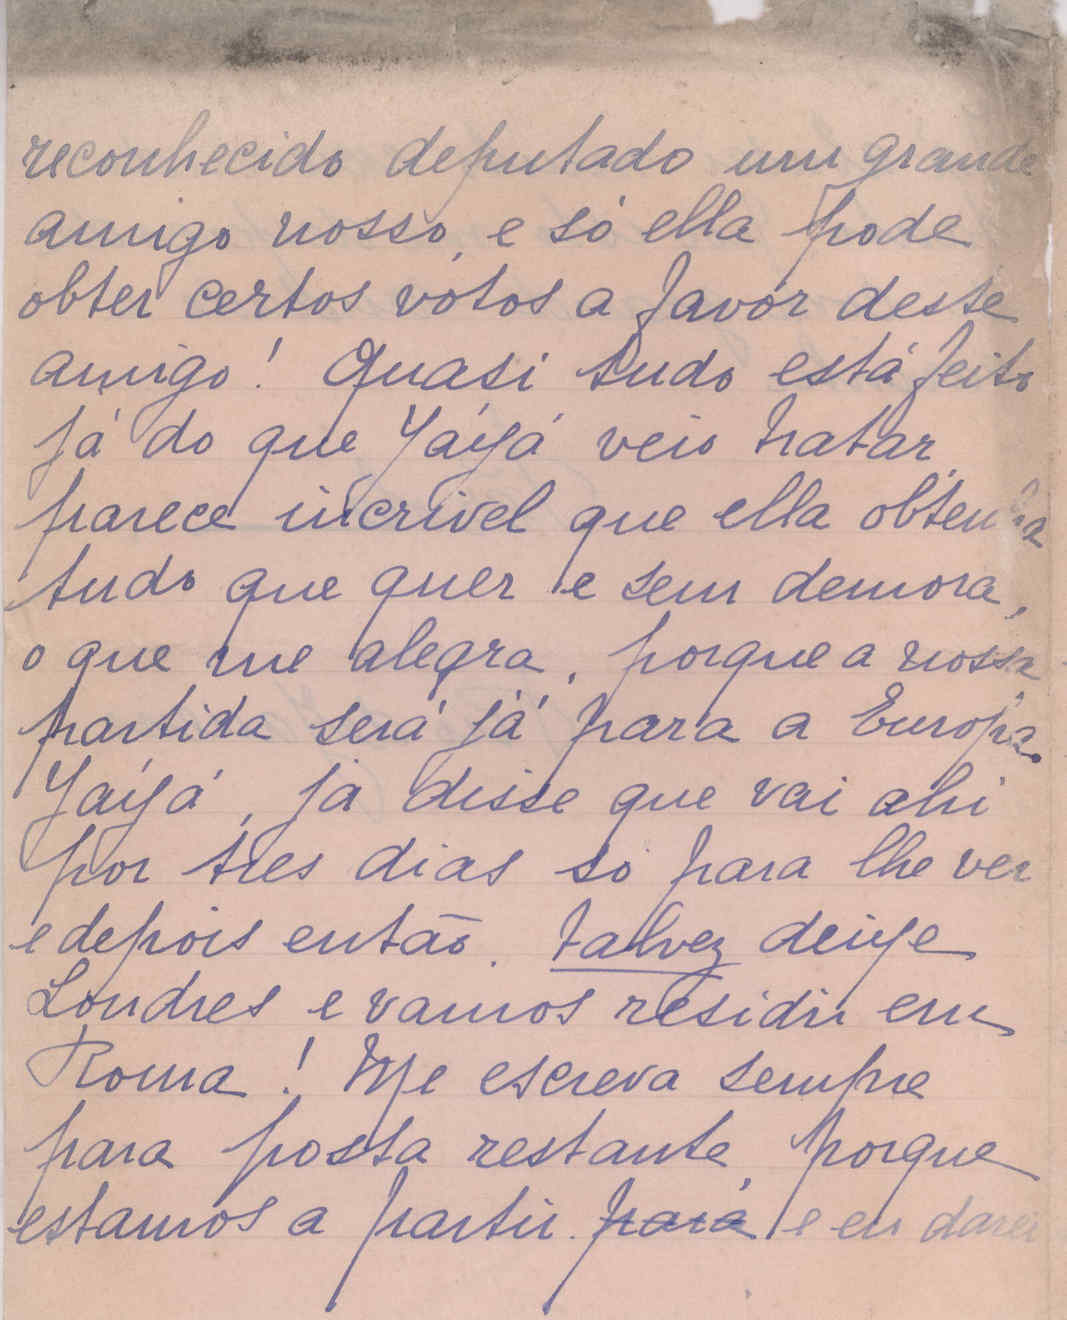 reconhecido deputado um grande
amigo nosso, e só ella pode
obter certos vótos a favor deste
amigo! Quasi tudo está feito
já do que Yáyá veio tratar,
parece incrivel que ella obtenha
tudo que quer e sem demora,
o que me alegra, porque a nossa
partida será já para a Európa.
Yáyá, já disse que vai ahi
por tres dias só para lhe ver
e depois então. talvez deixe
Londres e vamos residir em
Roma! Me escreva sempre
para posta restante, porque
estamos a partir. pará e eu darei